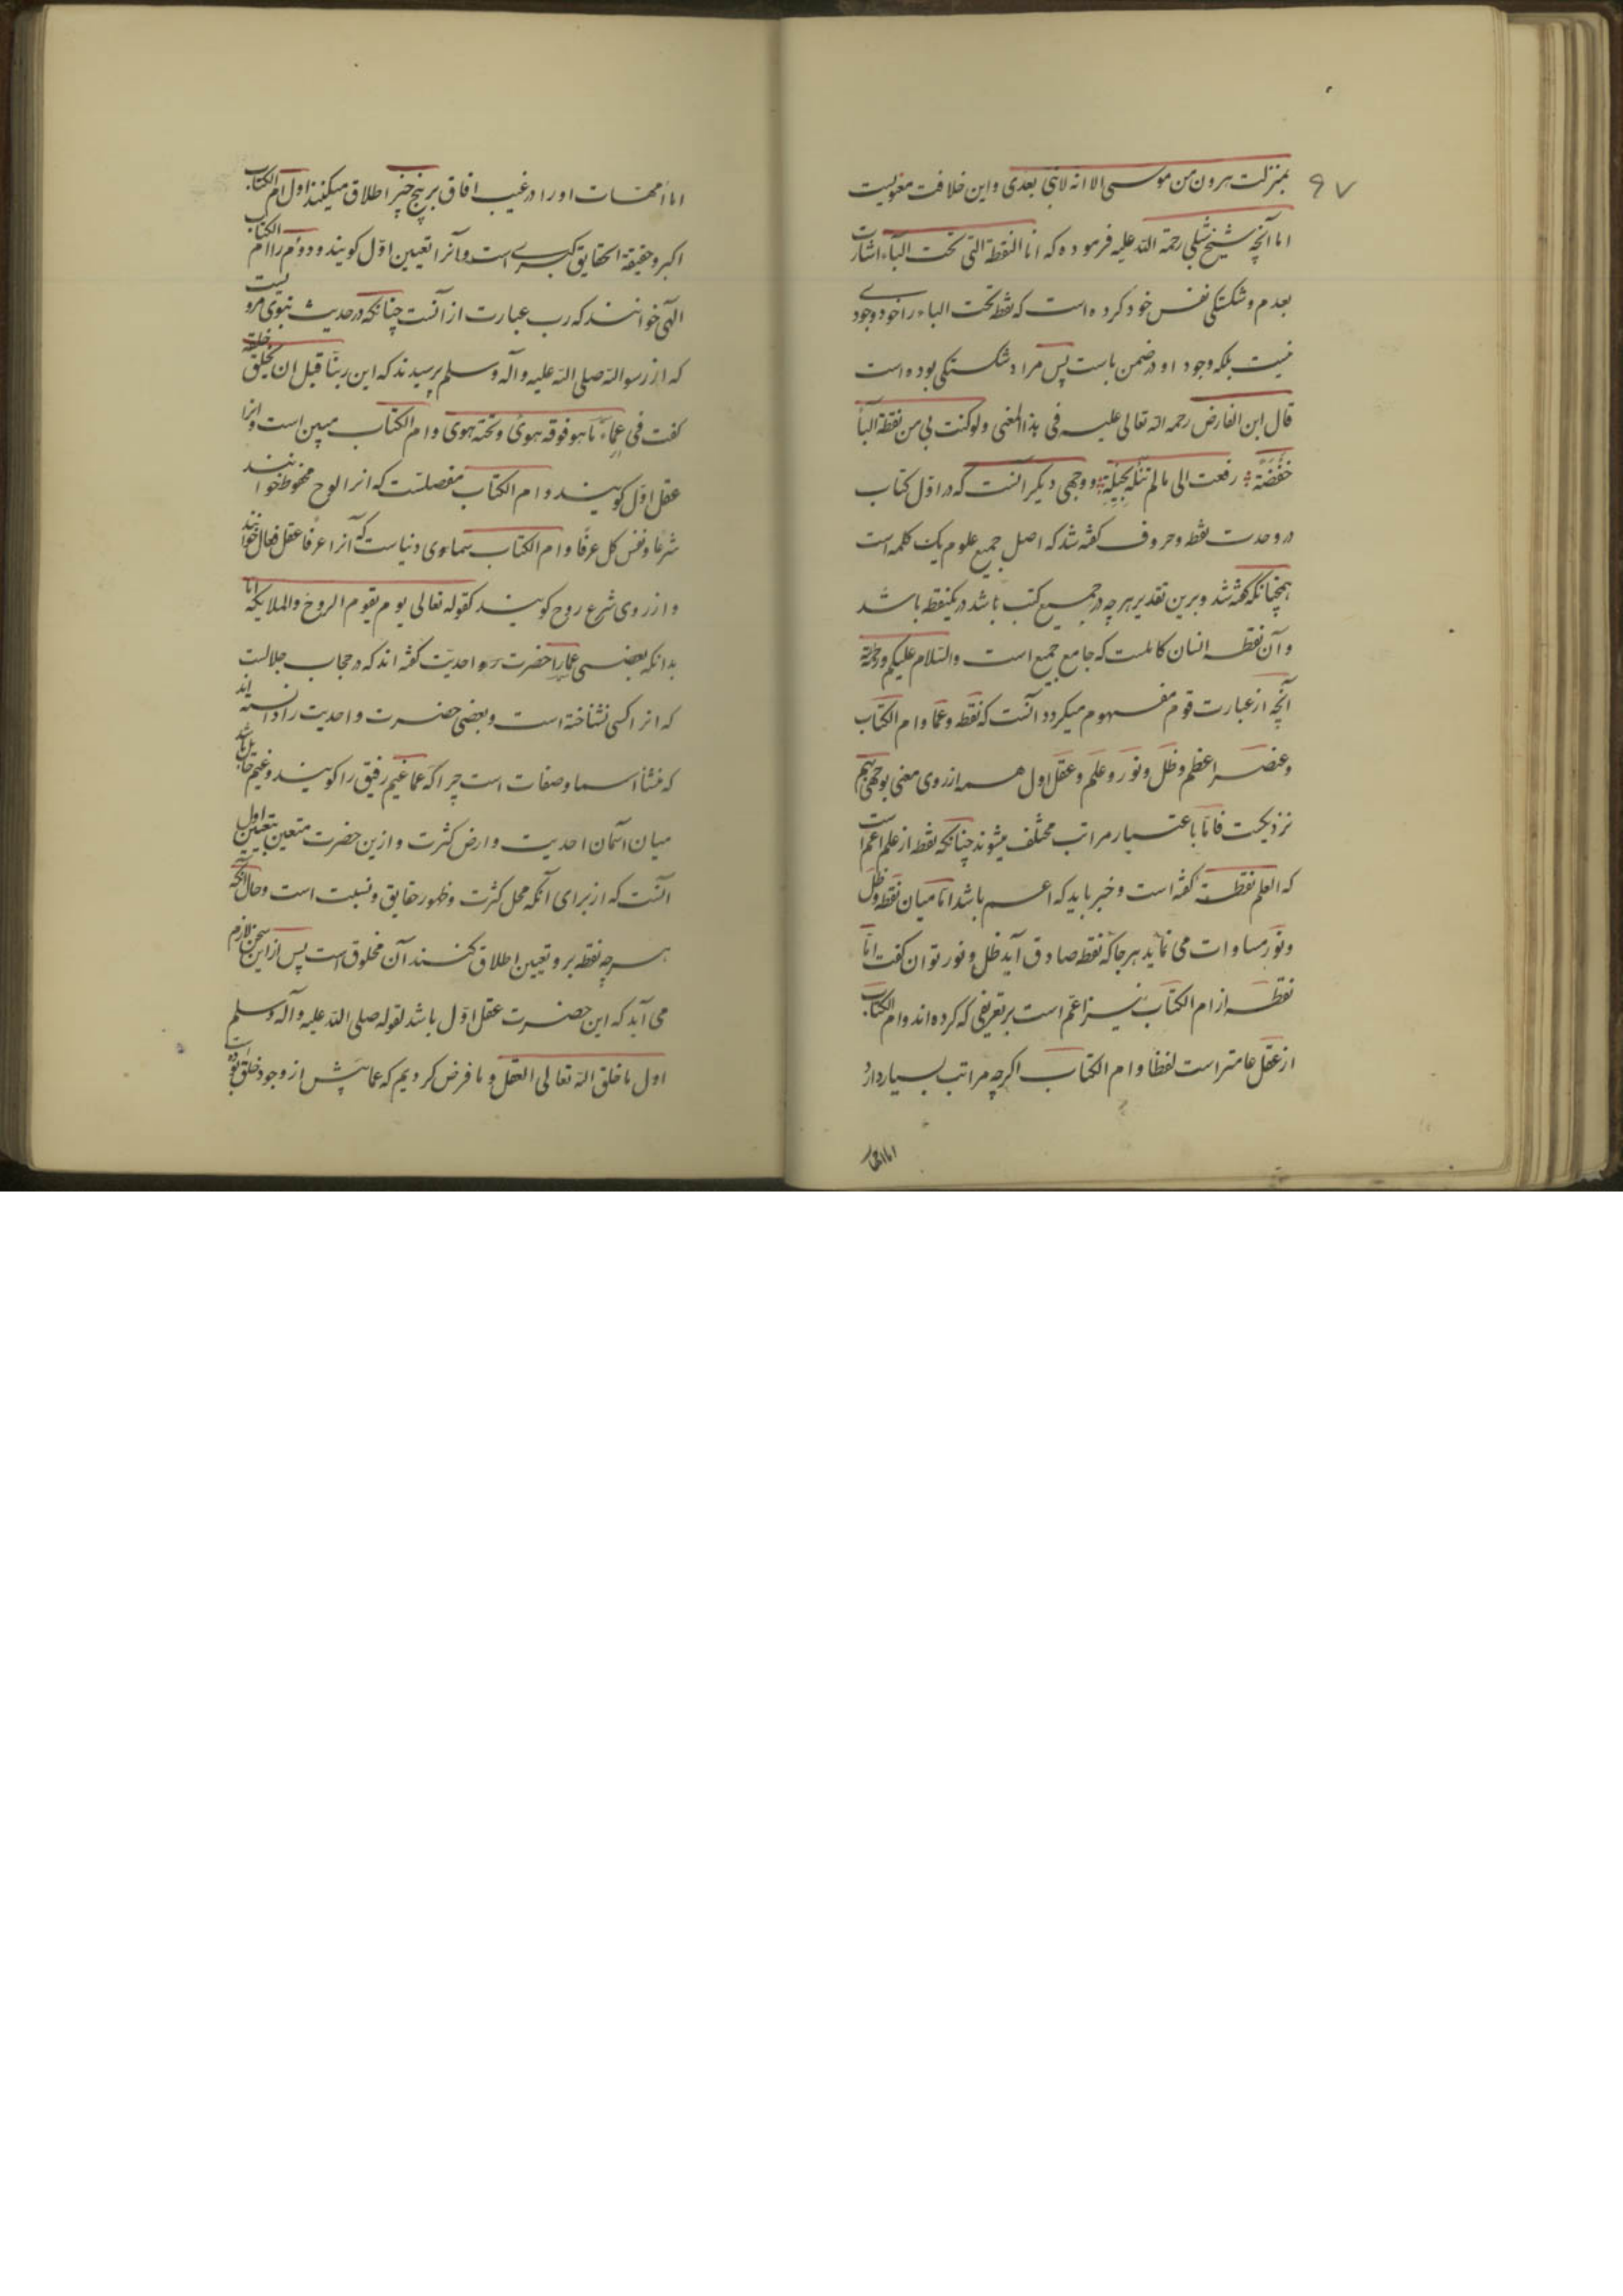 ۶۷
بمنزلت هرون من موسی الا انه لا نبی بعدی و این خلافت معنویست
اما آنچه شیخ شبلی رحمة الله علیه فرموده که انا النقطة التی تحت الباء اشارت
بعدم و شکستکی نفس خود کرده است که نقطه تحت الباء را خود وجودے
نیست بلکه وجود او در ضمن باست پس مراد شکستکی بوده است
قال ابن الفارض رحمه الله تعالی علیه فی هذا المعنی ولو کنت بی من نقطة البأ
خفضة رفعت الی ما لم تنله بحیلة و وجهی دیکر آنست که در اول کتاب
در وحدت نقطه و حروف کفته شد که اصل جمیع علوم یک کلمه است
همچنانکه کفته شد و برین تقدیر هر چه در جمیع کتب باشد در یکنقطه باشد
و آن نقطه انسان کاملست که جامع جمیع است والسلام علیکم و رحمة
آنچه از عبارت قوم مفهوم میکردد آنست که نقطه و عما و ام الکتاب
و عنصر اعظم و ظل و نور و علم و عقل اول همه از روی معنی بوجهی بهم
نزدیکست فاما باعتبار مراتب مختلف میشوند چنانکه نقطه از علم اعم است
که العلم نقطة کفته است و خبر باید که اعم باشد اما میان نقطه و ظل
و نور مساوات می نماید هر جا که نقطه صادق آید ظل و نور توان کفت اما
نقطه از ام الکتاب نیز اعم است بر تعریفی که کرده اند و ام الکتاب
از عقل عامتر است لفظا و ام الکتاب اکرچه مراتب بسیار دارد
اما امهات
اما امهات او را در غیب افاق بر پنج چیز اطلاق میکنند اول ام الکتاب
اکبر و حقیقة الحقایق کبرے است و آنرا تعیین اول کویند و دوم را ام الکتاب
الهی خوانند که رب عبارت از آنست چنانکه در حدیث نبوی مرویست
که از رسول الله صلی الله علیه و آله و سلم پرسیدند که این ربنا قبل ان یخلق خلقه
کفت فی عماء ما هو فوقه هوئ و تحته هوی و ام الکتاب مبین است و آنرا
عقل اول کویند و ام الکتاب مفصلست که انرا لوح محفوظ خوانند
شرعا و نفس کل عرفا و ام الکتاب سماوی دنیاست که آنرا عرفا عقل فعال خوانند
و از روی شرع روح کویند کقوله تعالی یوم یقوم الروح والملایکه اما
بدانکه بعضی عما را حضرت احدیت کفته اند که در حجاب جلالست
که انرا کسی نشناخته است و بعضی حضرت واحدیت را دانسته اند
که منشأ اسما و صفات است چرا که عما غیم رقیق را کویند و غیم حایل باشد
میان آسمان احدیت و ارض کثرت و ازین حضرت متعین بتعین اول
آنست که از برای آنکه محل کثرت و ظهور حقایق و نسبت است و حال آنکه
هر چه نقطه برو تعیین اطلاق کنند آن مخلوق است پس از این سخن لازم
می آید که این حضرت عقل اول باشد لقوله صلی الله علیه و آله و سلم
اول ما خلق الله تعالی العقل و ما فرض کردیم که عما پیش از وجود خلق بوده است